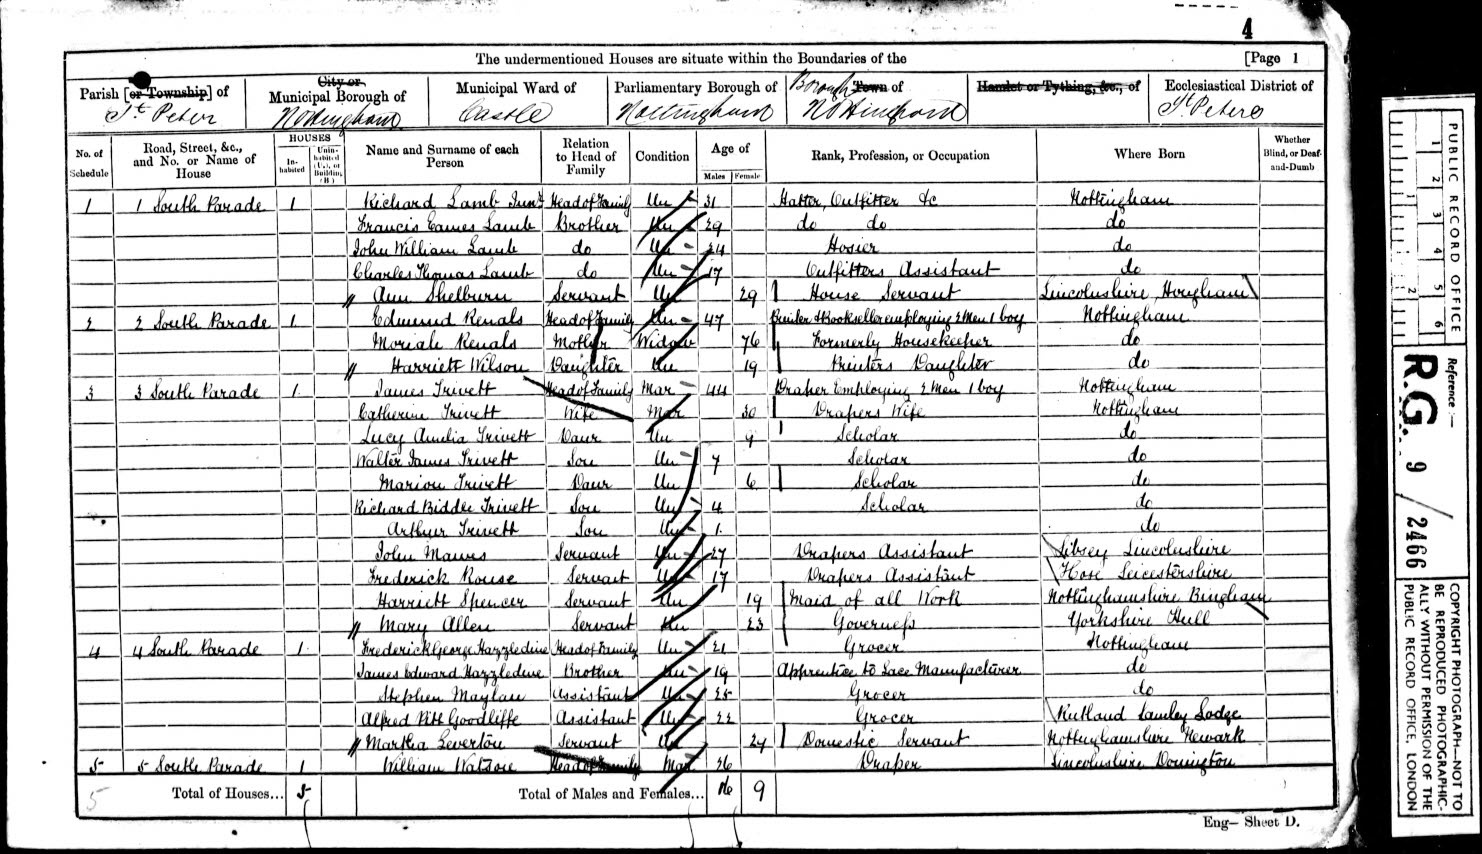 4
The undermentioned Houses are situate within the Boundaries of the [Page 1
Parish [or Township] of St. Peter
City or Municipal Borough of Nottingham
Municipal Ward of Castle
Parliamentary Borough of Nottingham
Borough Town of Nottingham
Hamlet or Tything, &c., of
Ecclesiastical District of St. Peters
No. of Schedule
Road, Street, &c., and No. or Name of House
HOUSES
Inhabited
Uninhabited (U.), or Building (B.)
Name and Surname of each Person
Relation to Head of Family
Condition
Age of
Males Females
Rank, Profession, or Occupation
Where Born
Whether Blind, or Deaf-and-Dumb
1 1 South Parade 1 Richard Lamb Junr Head of Family Un 31 Hatter, Outfitter &c Nottingham
Francis Eames Lamb Brother Un 29 do do do
John William Lamb do Un 24 Hosier do
Charles Thomas Lamb do Un 17 Outfitters Assistant do
Ann Shelburn Servant Un 29 House Servant Lincolnshire, Hougham
2 2 South Parade 1 Edmund Renals Head of Family Un 47 Printer & Bookseller employing 2 Men 1 boy Nottingham
Moriah Renals Mother Widow 76 Formerly Housekeeper do
Harriett Wilson Daughter Un 19 Printers Daughter do
3 3 South Parade 1 James Trivett Head of Family Mar 44 Draper Employing 2 Men 1 boy Nottingham
Catherine Trivett Wife Mar 30 Drapers Wife Nottingham
Lucy Amelia Trivett Daur Un 9 Scholar do
Walter James Trivett Son Un 7 Scholar do
Marion Trivett Daur Un 6 Scholar do
Richard Biddle Trivett Son Un 4 Scholar do
Arthur Trivett Son Un 1 do
John Mawes Servant Un 27 Drapers Assistant Sibsey Lincolnshire
Frederick Rouse Servant Un 17 Drapers Assistant Hose Leicestershire
Harriett Spencer Servant Un 19 Maid of all Work Nottinghamshire Bingham
Mary Allen Servant Un 23 Governess Yorkshire Hull
4 4 South Parade 1 Frederick George Hazzledine Head of Family Un 21 Grocer Nottingham
James Edward Hazzledine Brother Un 19 Apprentice to Lace Manufacturer do
Stephen Maylan Assistant Un 25 Grocer do
Alfred Pitt Goodliffe Assistant Un 22 Grocer Rutland Lodge
Martha Leverton Servant Un 24 Domestic Servant Nottinghamshire Newark
5 5 South Parade 1 William Watson Head of Family Mar 26 Draper Lincolnshire Donington
5 Total of Houses... 5 Total of Males and Females... 16 9
Eng— Sheet D.
PUBLIC RECORD OFFICE
1 2 3 4 5 6
1 2
Reference :—
R.G. 9 / 2466
COPYRIGHT PHOTOGRAPH—NOT TO BE REPRODUCED PHOTOGRAPHICALLY WITHOUT PERMISSION OF THE PUBLIC RECORD OFFICE, LONDON